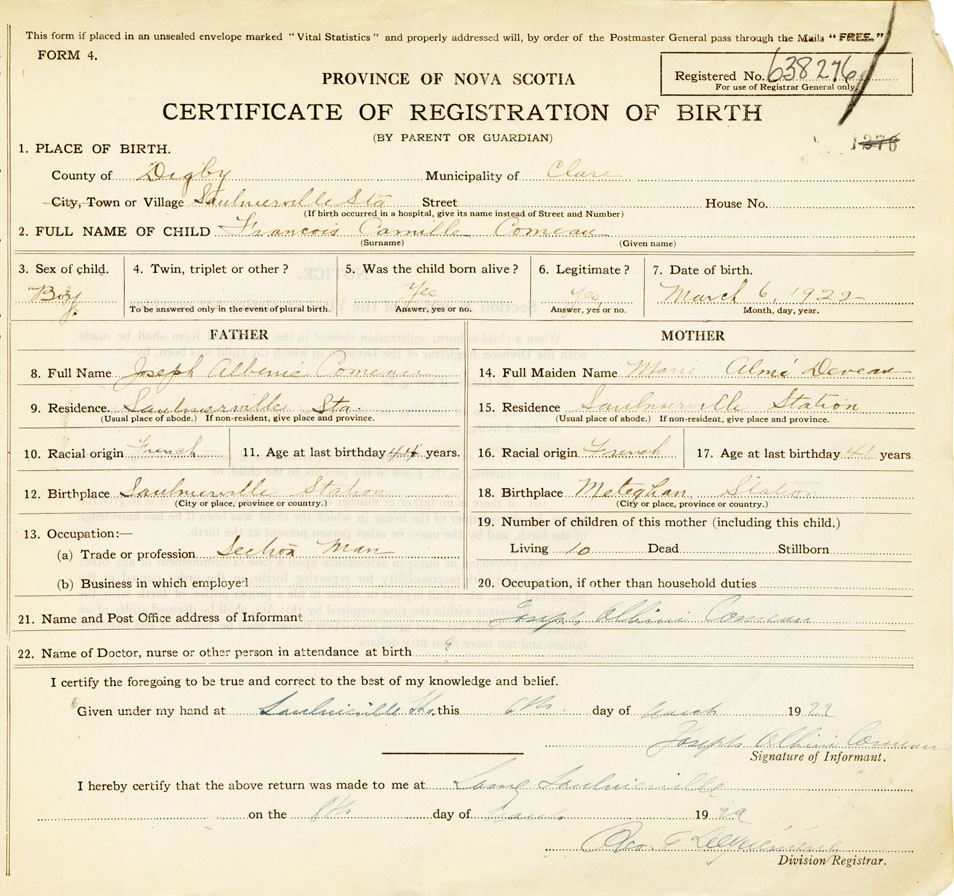 This form if placed in an unsealed envelope marked "Vital Statistics" and properly addressed will, by order of the Postmaster General pass through the Mails "FREE."
FORM 4.
Registered No. 638276
For use of Registrar General only.
PROVINCE OF NOVA SCOTIA
CERTIFICATE OF REGISTRATION OF BIRTH
(BY PARENT OR GUARDIAN)
1376
1. PLACE OF BIRTH.
County of Digby Municipality of Clare
City, Town or Village Saulnierville Sta Street House No.
(If birth occurred in a hospital, give its name instead of Street and Number)
2. FULL NAME OF CHILD Francois Camille Comeau
(Surname) (Given name)
3. Sex of child. 4. Twin, triplet or other? 5. Was the child born alive? 6. Legitimate? 7. Date of birth.
Boy Yes Yes March 6, 1929
To be answered only in the event of plural birth. Answer, yes or no. Answer, yes or no. Month, day, year.
FATHER MOTHER
8. Full Name Joseph Albenie Comeau 14. Full Maiden Name Marie Almé Deveau
9. Residence. Saulnierville Sta. 15. Residence Saulnierville Station
(Usual place of abode.) If non-resident, give place and province. (Usual place of abode.) If non-resident, give place and province.
10. Racial origin French 11. Age at last birthday 44 years. 16. Racial origin French 17. Age at last birthday 41 years.
12. Birthplace Saulnierville Station 18. Birthplace Meteghan Station
(City or place, province or country.) (City or place, province or country.)
13. Occupation:— 19. Number of children of this mother (including this child.)
(a) Trade or profession Section Man Living 10 Dead Stillborn
(b) Business in which employed 20. Occupation, if other than household duties
21. Name and Post Office address of Informant Joseph Albini Comeau
22. Name of Doctor, nurse or other person in attendance at birth
I certify the foregoing to be true and correct to the best of my knowledge and belief.
Given under my hand at Saulnierville Sta. this 6th day of March 1929
Joseph Albini Comeau
Signature of Informant.
I hereby certify that the above return was made to me at Lower Saulnierville
on the 8th day of March 1929
Division Registrar.